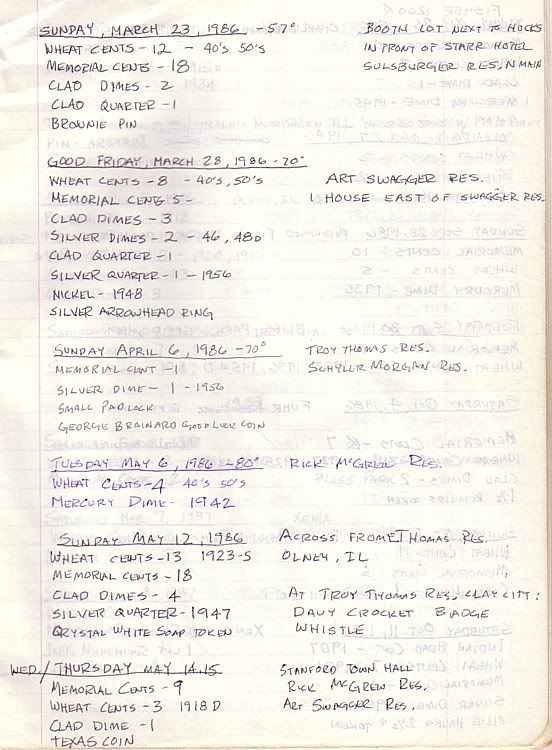 SUNDAY MARCH 23, 1986 - 57° BOOTH LOT NEXT TO HOCKS
WHEAT CENTS - 12 - 40's 50's IN FRONT OF STARR HOTEL
MEMORIAL CENTS - 18 SULSBURGER RES. N MAIN
CLAD DIMES - 2
CLAD QUARTER - 1
BROWNIE PIN
GOOD FRIDAY, MARCH 28, 1986 - 70°
WHEAT CENTS - 8 - 40's, 50's ART SWAGGER RES.
MEMORIAL CENTS 5 - 1 HOUSE EAST OF SWAGGER RES.
CLAD DIMES - 3
SILVER DIMES - 2 - 46, 48D
CLAD QUARTER - 1
SILVER QUARTER - 1 - 1956
NICKEL - 1948
SILVER ARROWHEAD RING
SUNDAY APRIL 6, 1986 - 70° TROY THOMAS RES.
MEMORIAL CENT - 1 SCHYLER MORGAN RES.
SILVER DIME - 1 - 1956
SMALL PADLOCK
GEORGE BRAINARD GOOD LUCK COIN
TUESDAY MAY 6, 1986 - 80° RICK McGREW RES.
WHEAT CENTS - 4 40's 50's
MERCURY DIME - 1942
SUNDAY MAY 12, 1986 ACROSS FROM THOMAS RES.
WHEAT CENTS - 13 1923-S OLNEY, IL
MEMORIAL CENTS - 18
CLAD DIMES - 4 AT TROY THOMAS RES, CLAY CITY:
SILVER QUARTER - 1947 DAVY CROCKET BADGE
CRYSTAL WHITE SOAP TOKEN WHISTLE
WED/THURSDAY MAY 14,15 STANFORD TOWN HALL
MEMORIAL CENTS - 9 RICK McGREW RES.
WHEAT CENTS - 3 1918 D ART SWAGGER RES.
CLAD DIME - 1
TEXAS COIN